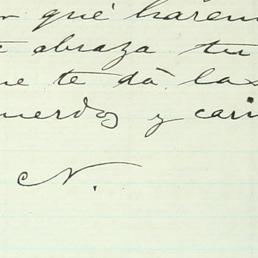 qué harem
abraza tu
te dá las
uerdos y cari
N.